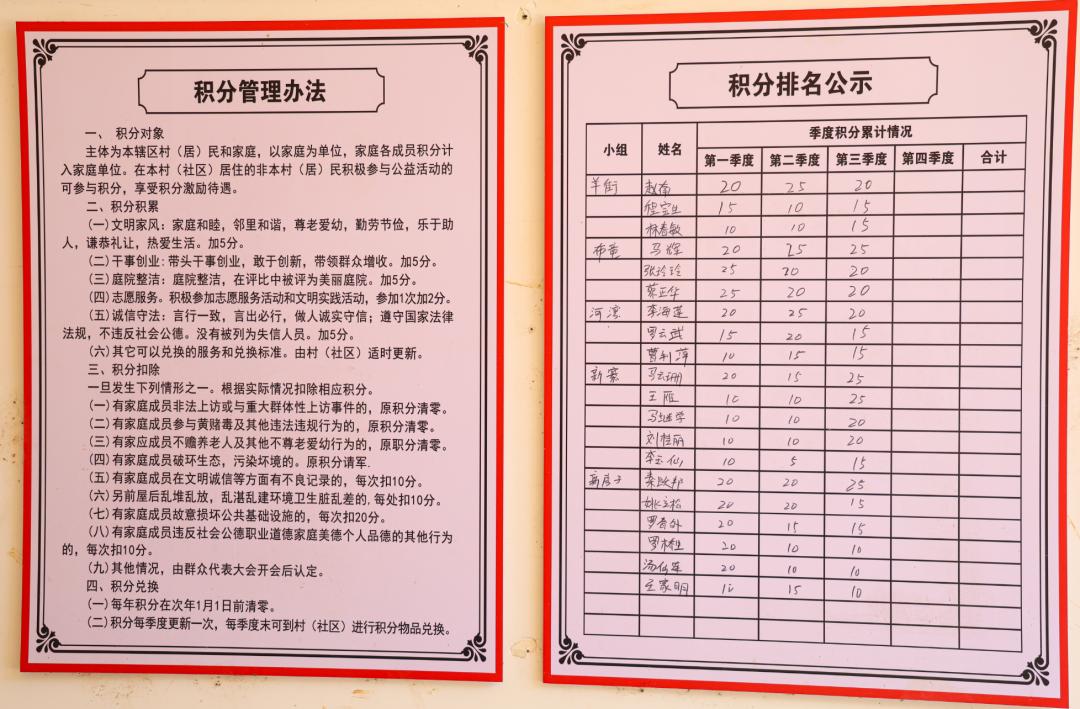 积分管理办法
一、 积分对象
主体为本辖区村（居）民和家庭，以家庭为单位，家庭各成员积分计
入家庭单位。在本村（社区）居住的非本村（居）民积极参与公益活动的
可参与积分，享受积分激励待遇。
二、积分积累
(一)文明家风：家庭和睦，邻里和谐，尊老爱幼，勤劳节俭，乐于助
人，谦恭礼让，热爱生活。加5分。
(二)干事创业:带头干事创业，敢于创新，带领群众增收。加5分。
(三)庭院整洁：庭院整洁，在评比中被评为美丽庭院。加5分。
(四)志愿服务。积极参加志愿服务活动和文明实践活动，参加1次加2分。
(五)诚信守法：言行一致，言出必行，做人诚实守信；遵守国家法律
法规，不违反社会公德。没有被列为失信人员。加5分。
(六)其它可以兑换的服务和兑换标准。由村（社区）适时更新。
三、积分扣除
一旦发生下列情形之一。根据实际情况扣除相应积分。
(一)有家庭成员非法上访或与重大群体性上访事件的，原积分清零。
(二)有家庭成员参与黄赌毒及其他违法违规行为的，原积分清零。
(三)有家应成员不赡养老人及其他不尊老爱幼行为的，原职分清零。
(四)有家庭成员破环生态，污染坏境的。原积分请军.
(五)有家庭成员在文明诚信等方面有不良记录的，每次扣10分。
(六)另前屋后乱堆乱放，乱湛乱建环境卫生脏乱差的,每处扣10分。
(七)有家庭成员故意损坏公共基础设施的，每次扣20分。
(八)有家庭成员违反社会公德职业道德家庭美德个人品德的其他行为
的，每次扣10分。
(九)其他情况，由群众代表大会开会后认定。
四、积分兑换
(一)每年积分在次年1月1日前清零。
(二)积分每季度更新一次，每季度末可到村（社区）进行积分物品兑换。
积分排名公示
小组 姓名 季度积分累计情况
第一季度 第二季度 第三季度 第四季度 合计
羊街 赵南 20 25 20
程宝生 15 10 15
杨春敏 10 10 15
布黄 马辉 20 25 25
张玲玲 25 20 20
蔡正华 25 20 20
河滨 李海莲 20 25 20
罗云武 15 20 15
曹利萍 10 15 15
新寨 马云珊 20 15 25
王雁 10 10 25
马继学 10 10 20
刘桂丽 10 10 20
李玉仙 10 5 15
秦政邦 20 20 25
姚立松 20 20 15
罗 20 15 15
罗 20 10 10
汤 20 10 10
庄家明 10 15 10